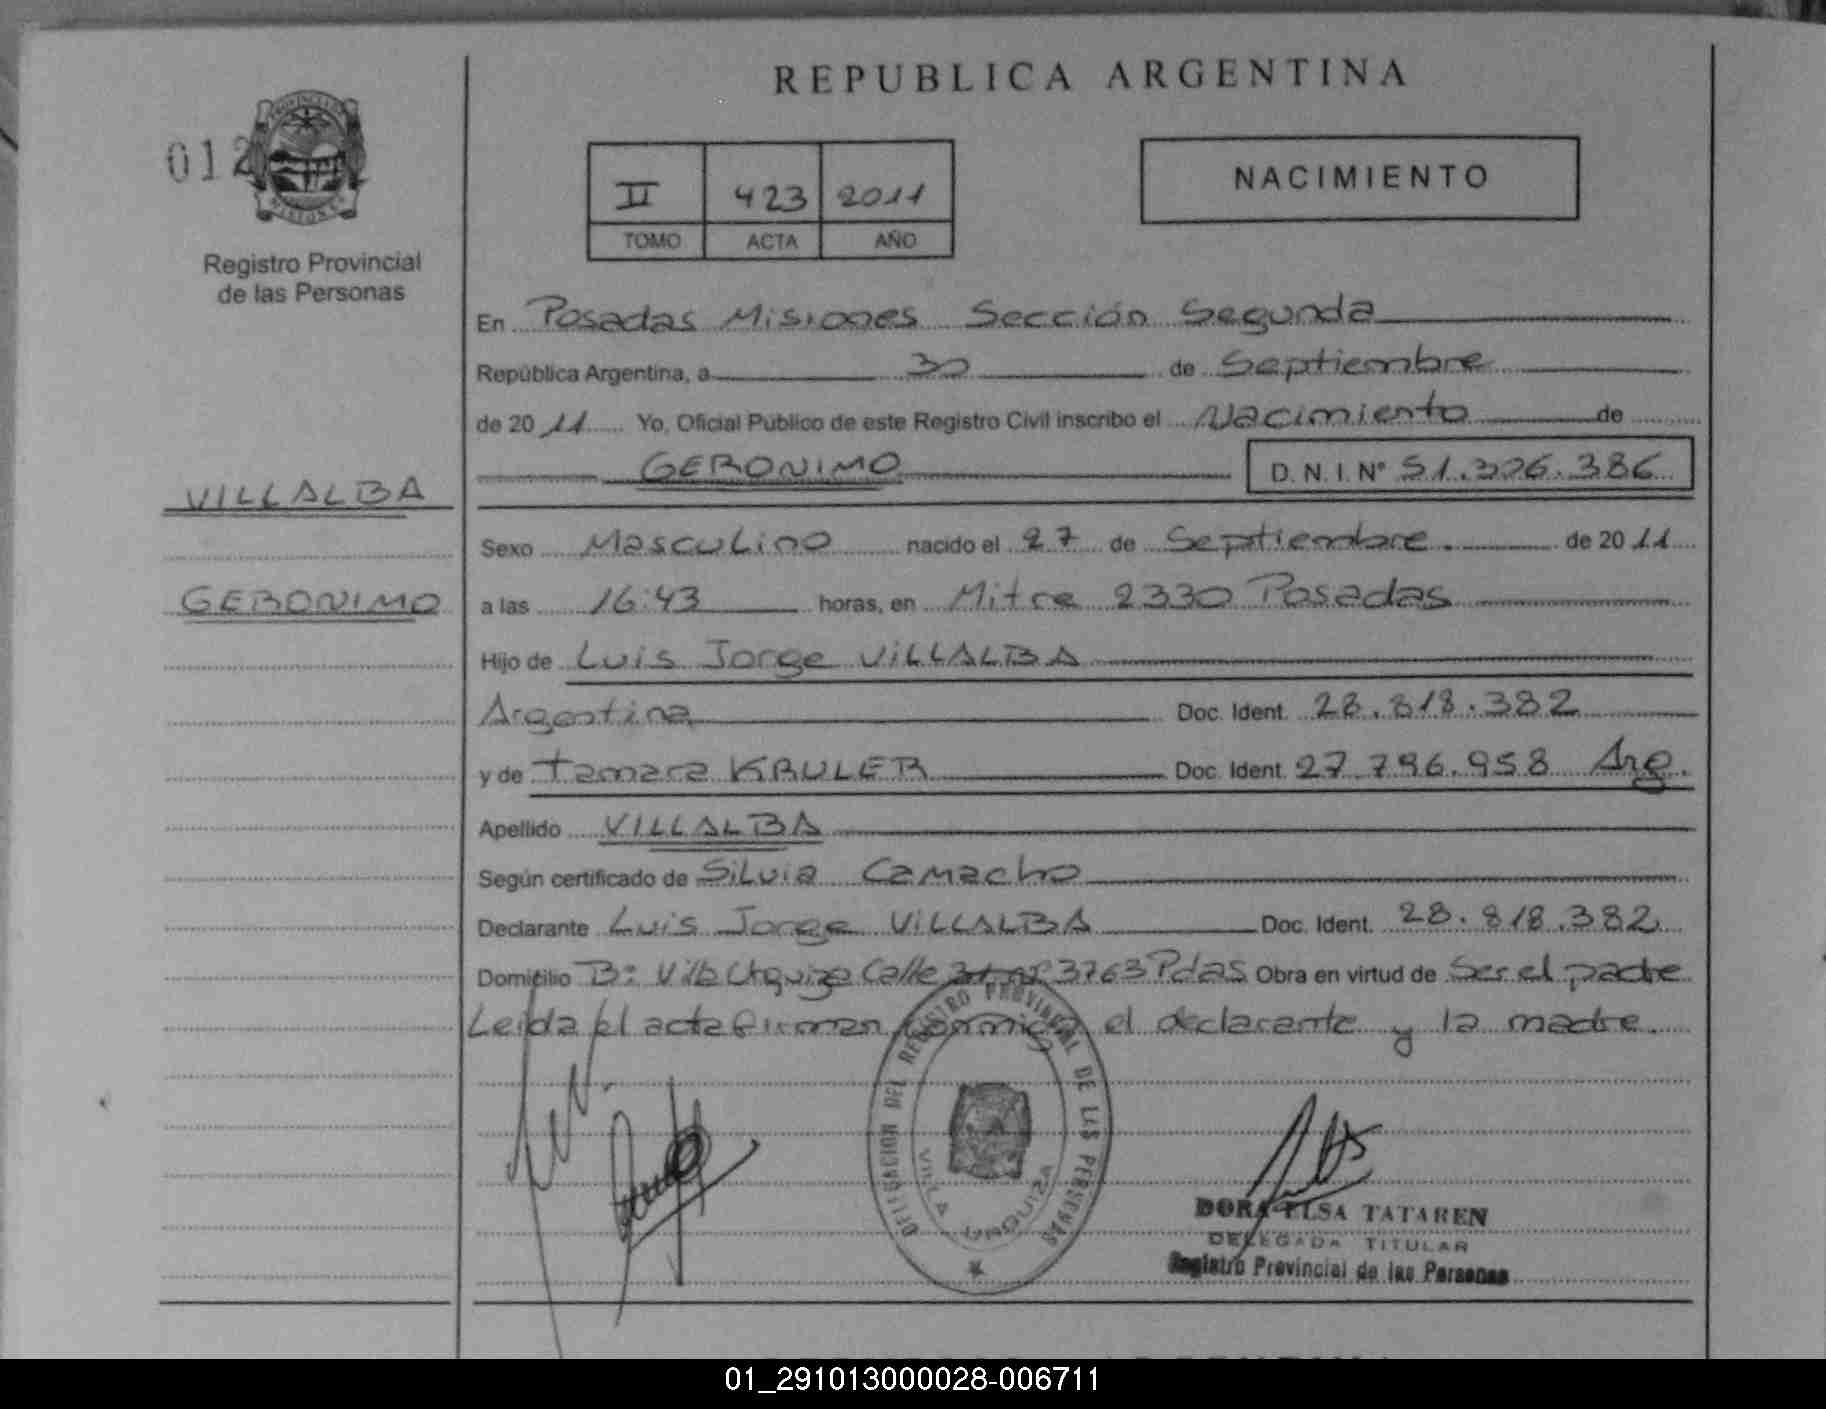 REPUBLICA ARGENTINA
012
PROVINCIA
MISIONES
Registro Provincial
de las Personas
II 423 2011
TOMO ACTA AÑO
NACIMIENTO
En Posadas Misiones Sección Segunda
República Argentina, a 30 de Septiembre
de 20 11 Yo, Oficial Público de este Registro Civil inscribo el Nacimiento de
GERONIMO D. N. I. Nº 51.326.386
VILLALBA
Sexo Masculino nacido el 27 de Septiembre de 20 11
GERONIMO
a las 16:43 horas, en Mitre 2330 Posadas
Hijo de Luis Jorge VILLALBA
Argentina Doc. Ident. 28.818.382
y de Tamara KRULER Doc. Ident. 27.796.958 Arg.
Apellido VILLALBA
Según certificado de Silvia Camacho
Declarante Luis Jorge VILLALBA Doc. Ident. 28.818.382
Domicilio B: Villa Urquiza Calle 3763 Pdas Obra en virtud de Ser el padre
Leida el acta firman conmigo el declarante y la madre.
DELEGACION DEL REGISTRO PROVINCIAL DE LAS PERSONAS
VILLA URQUIZA
DORA ELSA TATAREN
DELEGADA TITULAR
Registro Provincial de las Personas
01_291013000028-006711